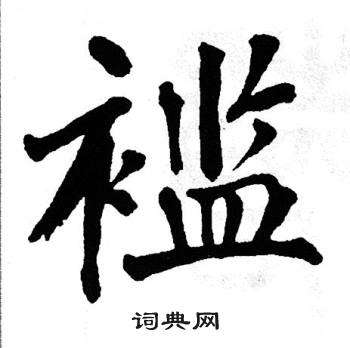 褴
词典网